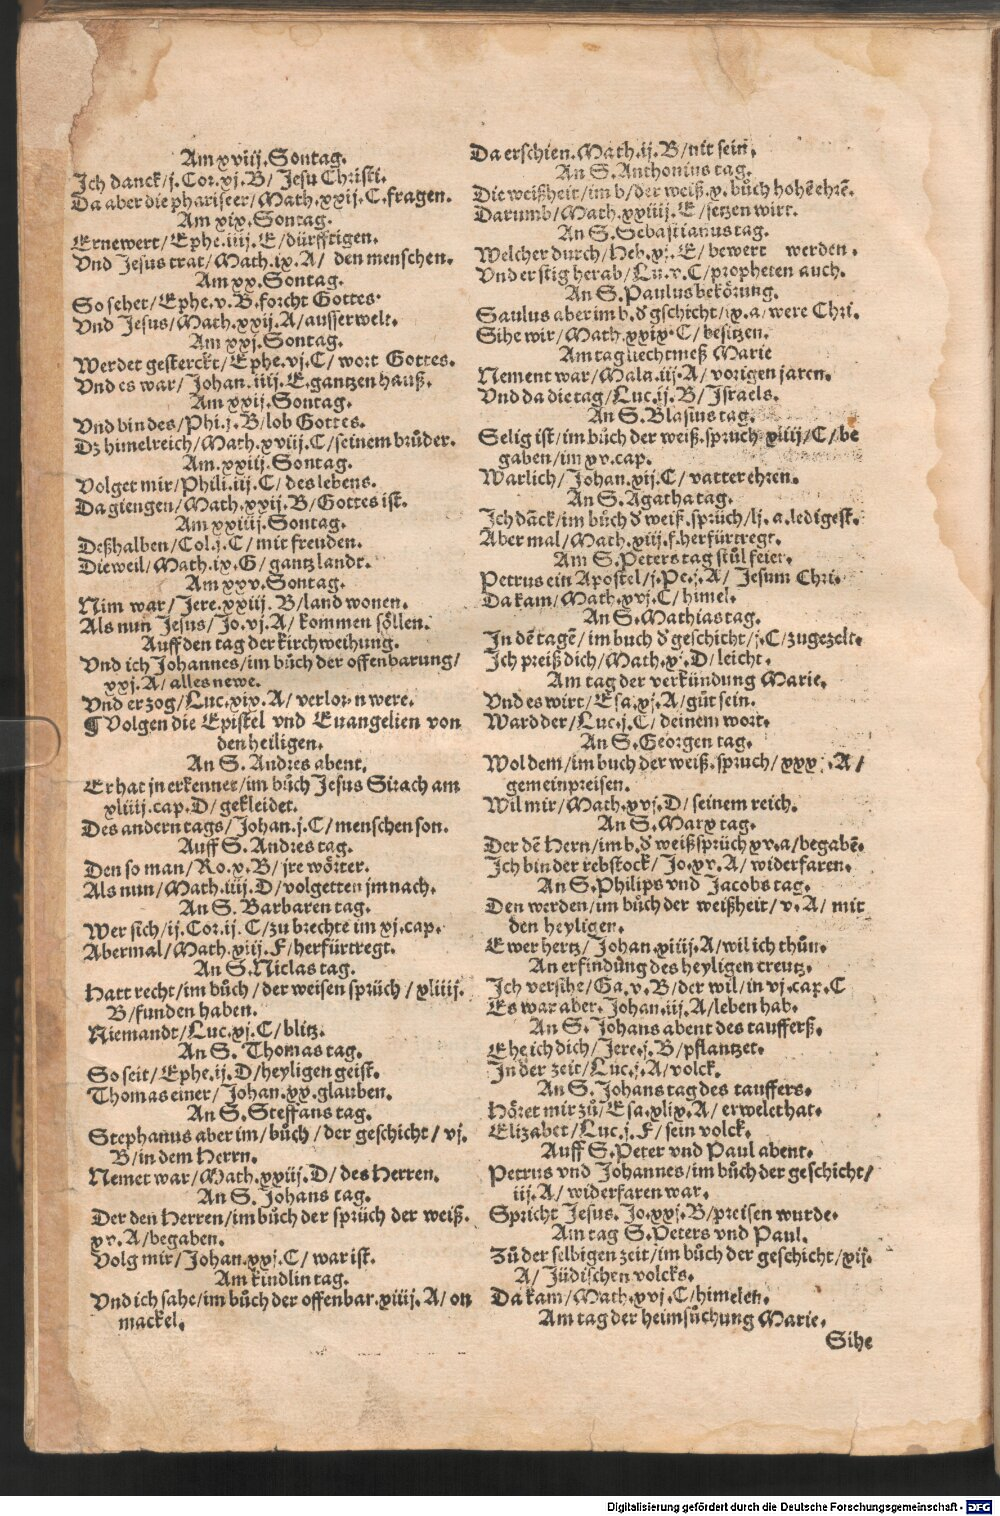 Am xviij. Sontag.
Ich danck/ j. Cor. xj. B/ Jesu Christi.
Da aber die phariseer/ Math. xxij. C. fragen.
Am xix. Sontag.
Ernewert/ Ephe. iiij. E/ dürfftigen.
Vnd Jesus trat/ Math. ix. A/ den menschen.
Am xx. Sontag.
So sehet/ Ephe. v. B. forcht Gottes.
Vnd Jesus/ Math. xxij. A/ ausserwelt.
Am xxj. Sontag.
Werdet gesterckt/ Ephe. vj. C/ wort Gottes.
Vnd es war/ Johan. iiij. E. gantzen hauß.
Am xxij. Sontag.
Vnd bin des/ Phi. j. B/ lob Gottes.
Dz himelreich/ Math. xviij. C/ seinem brůder.
Am. xxiij. Sontag.
Volget mir/ Phili. iij. C/ des lebens.
Da giengen/ Math. xxij. B/ Gottes ist.
Am xxiiij. Sontag.
Deßhalben/ Col. j. C/ mit freuden.
Dieweil/ Math. ix. G/ gantz landt.
Am xxv. Sontag.
Nim war/ Jere. xxiij. B/ land wonen.
Als nun Jesus/ Jo. vj. A/ kommen söllen.
Auff den tag der kirchweihung.
Vnd ich Johannes/ im bůch der offenbarung/
xxj. A/ alles newe.
Vnd er zog/ Luc. xix. A/ verlorn were.
¶ Volgen die Epistel vnd Euangelien von
den heiligen.
An S. Andres abent.
Er hat jn erkennet/ im bůch Jesus Sirach am
xliiij. cap. D/ gekleidet.
Des andern tags/ Johan. j. C/ menschen son.
Auff S. Andres tag.
Den so man/ Ro. x. B/ jre wörter.
Als nun/ Math. iiij. D/ volgetten jm nach.
An S. Barbaren tag.
Wer sich/ ij. Cor. ij. C/ zu brechte im xj. cap.
Abermal/ Math. xiij. F/ herfürtregt.
An S. Niclas tag.
Hatt recht/ im bůch/ der weisen sprüch/ xliiij.
B/ funden haben.
Niemandt/ Luc. xj. C/ blitz.
An S. Thomas tag.
So seit/ Ephe. ij. D/ heyligen geist.
Thomas einer/ Johan. xx. glauben.
An S. Steffans tag.
Stephanus aber im/ bůch/ der geschicht/ vj.
B/ in dem Herrn.
Nemet war/ Math. xxiij. D/ des Herren.
An S. Johans tag.
Der den Herren/ im bůch der sprüch der weiß.
xv. A/ begaben.
Volg mir/ Johan. xxj. C/ war ist.
Am kindlin tag.
Vnd ich sahe/ im bůch der offenbar. xiiij. A/ on
mackel.
Da erschien. Math. ij. B/ nit sein.
An S. Anthonius tag.
Die weißheit/ im b/ der weiß. x. bůch hohē ehrē.
Darumb/ Math. xxiiij. E/ setzen wirt.
An S. Sebastianus tag.
Welcher durch/ Heb. xj. E/ bewert werden.
Vnd er stig herab/ Lu. v. C/ propheten auch.
An S. Paulus bekörung.
Saulus aber im b. d̕ gschicht/ ix. a/ were Chri.
Sihe wir/ Math. xxix. C/ besitzen.
Am tag liechtmeß Marie
Nement war/ Mala. iij. A/ vorigen jaren.
Vnd da die tag/ Luc. ij. B/ Israels.
An S. Blasius tag.
Selig ist/ im bůch der weiß. spruch xiiij/ C/ be
gaben/ im xv. cap.
Warlich/ Johan. xij. C/ vatter ehren.
An S. Agatha tag.
Ich dāck/ im bůch d̕ weiß. sprüch/ lj. a. ledigest.
Aber mal/ Math. xiij. f. herfürtregt.
Am S. Peters tag stůl feier.
Petrus ein Apostel/ j. Pe. j. A/ Jesum Chri.
Da kam/ Math. xvj. C/ himel.
An S. Mathias tag.
In dē tagē/ im buch d̕ geschicht/ j. C/ zugezelt.
Ich preiß dich/ Math. xj. D/ leicht.
Am tag der verkündung Marie.
Vnd es wirt/ Esa. xj. A/ gůt sein.
Ward der/ Luc. j. C/ deinem wort.
An S. Georgen tag.
Wol dem/ im buch der weiß. spruch/ xxx. A/
gemein preisen.
Wil mir/ Math. xvj. D/ seinem reich.
An S. Marx tag.
Der dē Hern/ im b. d̕ weiß sprüch xv. a/ begabē.
Ich bin der rebstock/ Jo. xv. A/ widerfaren.
An S. Philips vnd Jacobs tag.
Den werden/ im bůch der weißheit/ v. A/ mit
den heyligen.
Ewer hertz/ Johan. xiiij. A/ wil ich thůn.
An erfindung des heyligen creutz.
Ich versihe/ Ga. v. B/ der wil/ in vj. cap. C
Es war aber. Johan. iij. A/ leben hab.
An S. Johans abent des taufferß.
Ehe ich dich/ Jere. j. B/ pflantzet.
In der zeit/ Luc. j. A/ volck.
An S. Johans tag des tauffers.
Höret mir zů/ Esa. xlix. A/ erwelet hat.
Elizabet/ Luc. j. F/ sein volck.
Auff S. Peter vnd Paul abent.
Petrus vnd Johannes/ im bůch der geschicht/
iij. A/ widerfaren war.
Spricht Jesus. Jo. xxj. B/ preisen wurde.
Am tag S. Peters vnd Paul.
Zů der selbigen zeit/ im bůch der geschicht/ xij.
A/ Jüdischen volcks.
Da kam/ Math. xvj. C/ himelen.
Am tag der heimsůchung Marie.
Sihe
Digitalisierung gefördert durch die Deutsche Forschungsgemeinschaft - DFG